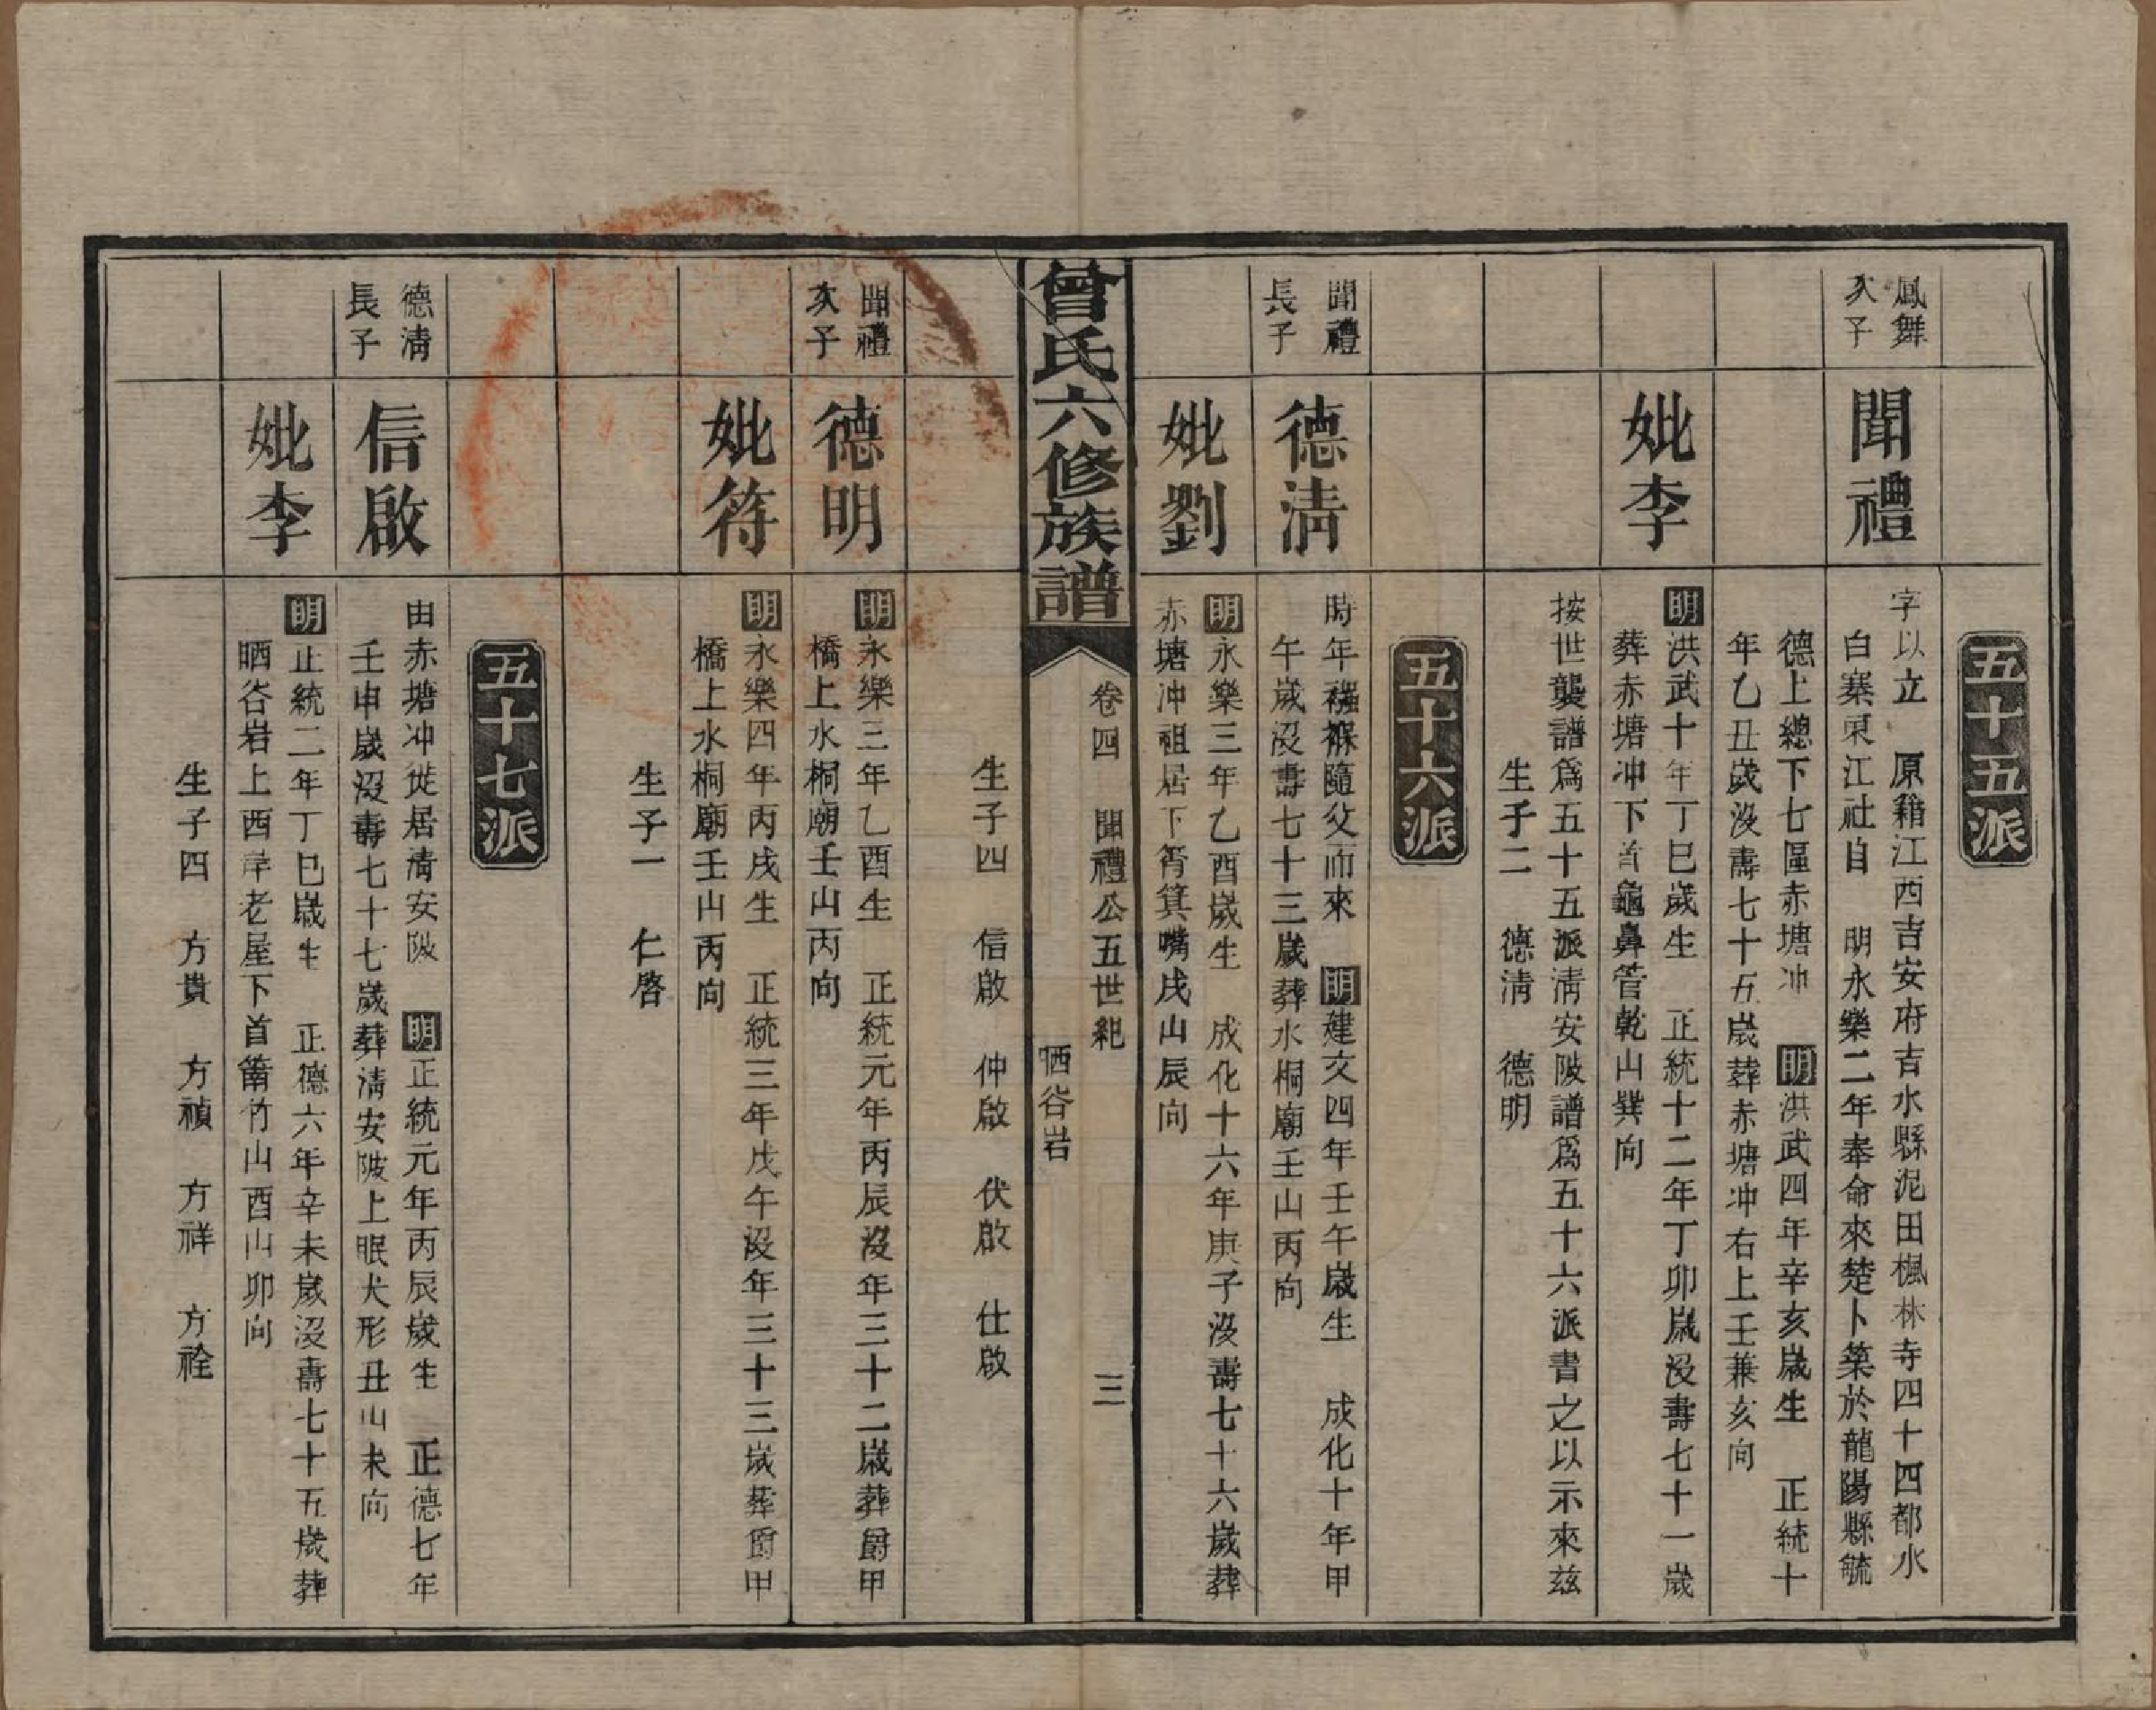 五十五派
鳳舞
次子
聞禮
字以立　原籍江西吉安府吉水縣泥田楓林寺四十四都水
白寨東江社自　明永樂二年奉命來楚卜築於龍陽縣毓
德上總下七區赤塘冲　明洪武四年辛亥歲生　正統十
年乙丑歲沒壽七十五歲葬赤塘冲右上壬兼亥向
妣李
明洪武十年丁巳歲生　正統十二年丁卯歲沒壽七十一歲
葬赤塘冲下首龜鼻管乾山巽向
按世襲譜爲五十五派淸安陂譜爲五十六派書之以示來兹
生子二　德淸　德明
五十六派
聞禮
長子
德淸
時年襁褓隨父而來　明建文四年壬午歲生　成化十年甲
午歲沒壽七十三歲葬水桐廟壬山丙向
妣劉
明永樂三年乙酉歲生　成化十六年庚子沒壽七十六歲葬
赤塘冲祖居下筲箕嘴戌山辰向
曾氏六修族譜
卷四　聞禮公五世紀
三
晒谷岩
生子四　信啟　仲啟　伏啟　仕啟
聞禮
次子
德明
明永樂三年乙酉生　正統元年丙辰沒年三十二歲葬爵甲
橋上水桐廟壬山丙向
妣符
明永樂四年丙戌生　正統三年戊午沒年三十三歲葬爵甲
橋上水桐廟壬山丙向
生子一　仁啓
五十七派
德淸
長子
信啟
由赤塘冲徙居淸安陂　明正統元年丙辰歲生　正德七年
壬申歲沒壽七十七歲葬淸安陂上眠犬形丑山未向
妣李
明正統二年丁巳歲生　正德六年辛未歲沒壽七十五歲葬
晒谷岩上西岸老屋下首竹山酉山卯向
生子四　方貴　方禎　方祥　方祿